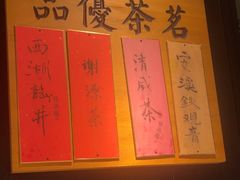 品優茶茗
西湖龍井
謝源茶
清咸茶
安溪鉄觀音